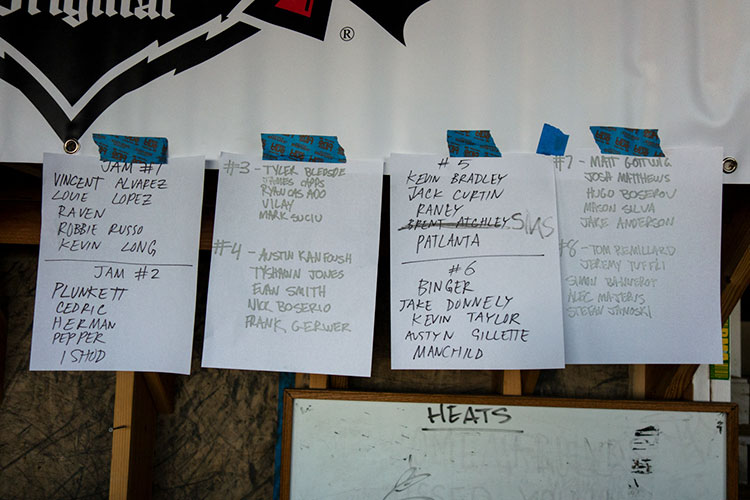 Original
®
JAM #1
VINCENT ALVAREZ
LOUIE LOPEZ
RAVEN
ROBBIE RUSSO
KEVIN LONG
JAM #2
PLUNKETT
CEDRIC
HERMAN
PEPPER
ISHOD
#3 - TYLER BLEDSOE
JAMES CAPPS
RYAN CAS ADO
VILAY
MARK SUCIU
#4 - AUSTIN KANFOUSH
TYSHAWN JONES
EVAN SMITH
NICK BOSERIO
FRANK GERWER
#5
KEVIN BRADLEY
JACK CURTIN
RANEY
BRENT ATCHLEY SILAS
PATLANTA
#6
BINGER
JAKE DONNELY
KEVIN TAYLOR
AUSTYN GILLETTE
MANCHILD
#7 - MATT GOTTWIG
JOSH MATTHEWS
HUGO BOSEROU
MASON SILVA
JAKE ANDERSON
#8 - TOM REMILLARD
JEREMY TUFFLI
SIMON BANNEROT
ALEC MAJERUS
STEFAN JANOSKI
HEATS